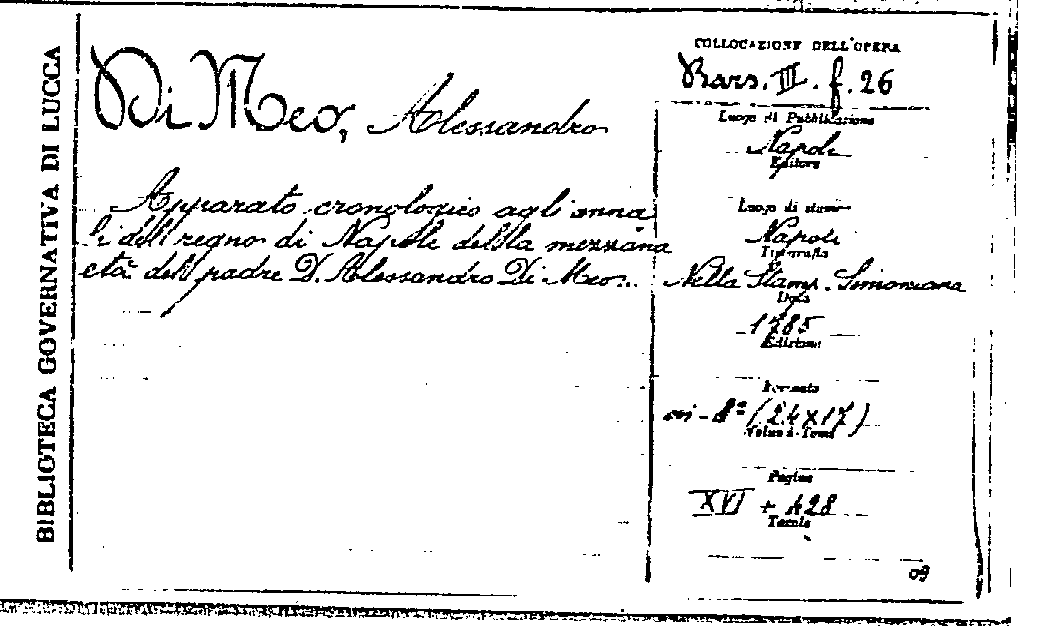 BIBLIOTECA GOVERNATIVA DI LUCCA
Di Meo, Alessandro
Apparato cronologico agli anna
li del regno di Napoli della mezzana
età del padre D. Alessandro Di Meo..
COLLOCAZIONE DELL'OPERA
III. f. 26
Luogo di Pubblicazione
Napoli
Editore
Luogo di stampa
Napoli
Tipografia
Nella Stamp. Simoniana
Data
1785
Edizione
Formato
in-8° (24x17)
Volumi o Tomi
Pagine
XVI + 428
Tavole